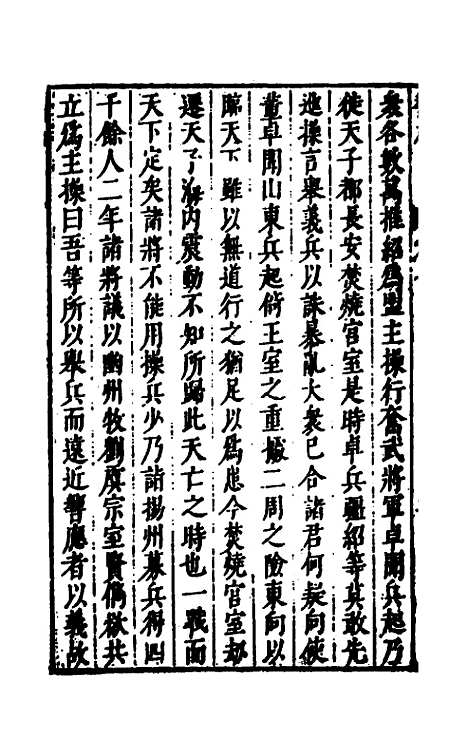 衆各數萬推紹爲盟主操行奮武將軍卓聞兵起乃
徙天子都長安焚燒宫室是時卓兵疆紹等莫敢先
進操言舉義兵以誅暴亂大衆已合諸君何疑向使
董卓聞山東兵起倚王室之重據二周之險東向以
臨天下雖以無道行之猶足以爲患今焚燒宫室刼
遷天子海内震動不知所歸此天亡之時也一戰而
天下定矣諸將不能用操兵少乃詣揚州募兵得四
千餘人二年諸將議以幽州牧劉虞宗室賢儁欲共
立爲主操曰吾等所以舉兵而遠近響應者以義故